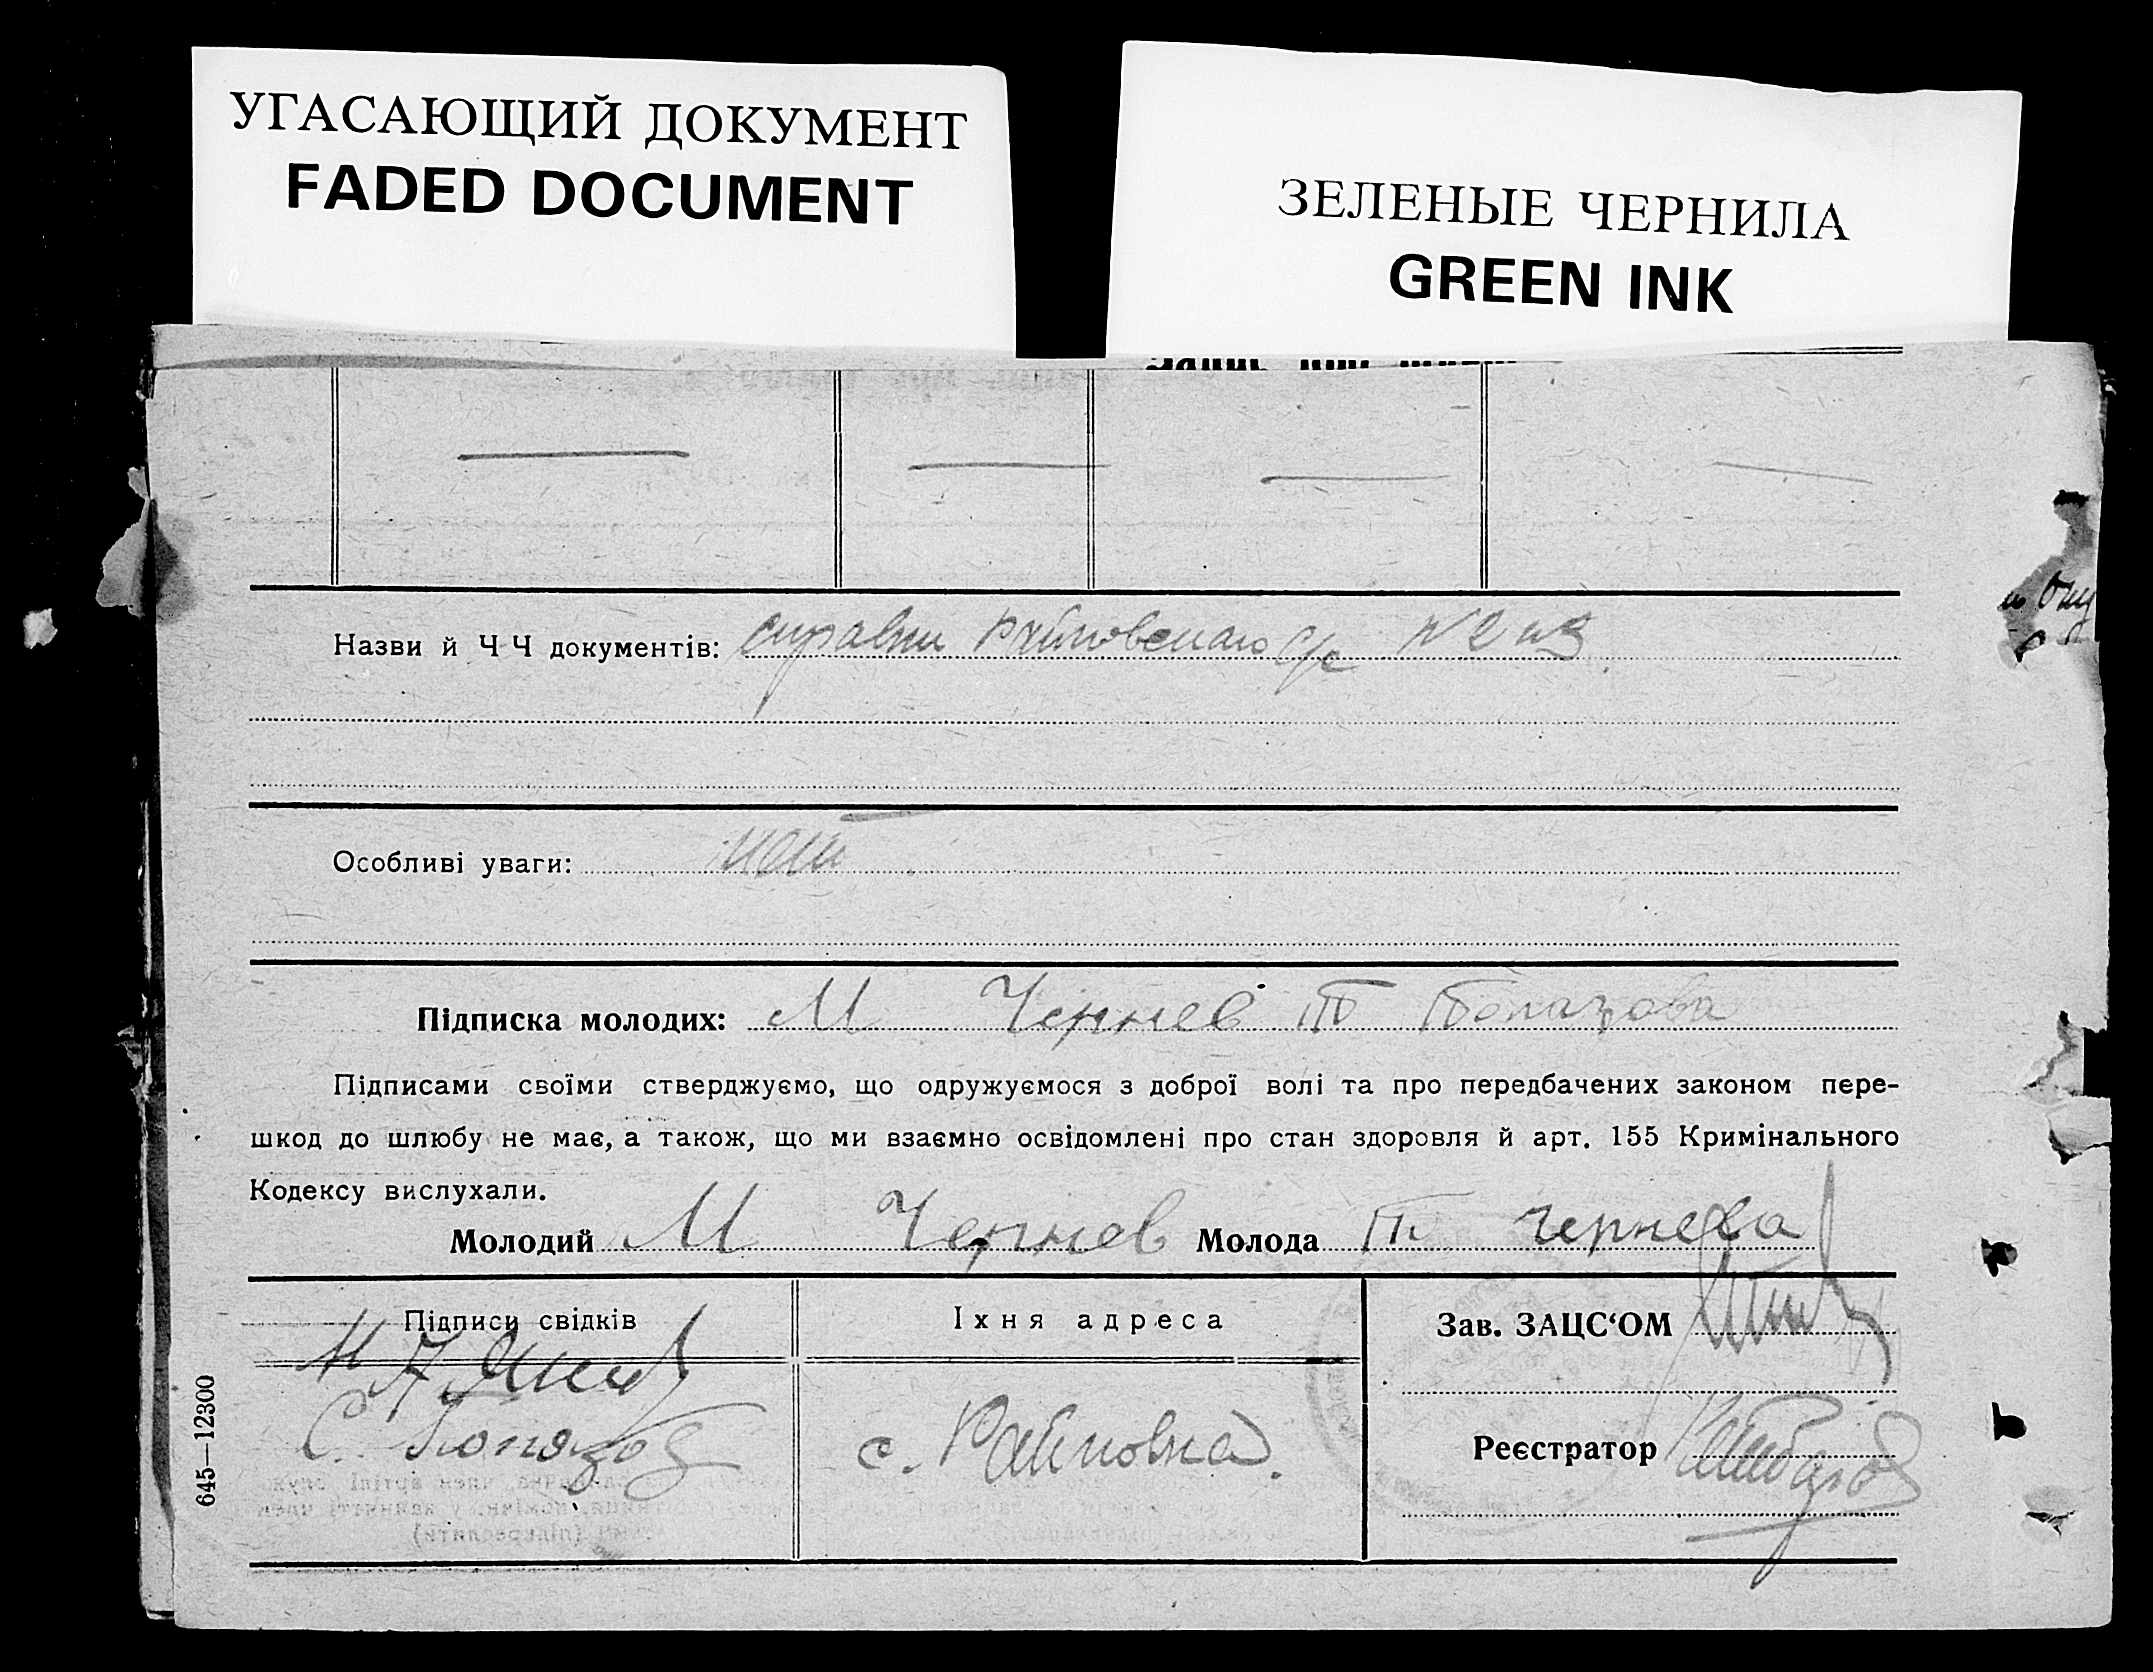 УГАСАЮЩИЙ ДОКУМЕНТ
FADED DOCUMENT
ЗЕЛЕНЫЕ ЧЕРНИЛА
GREEN INK
Назви й Ч Ч документів: справки Райновского с/с N 2 и 3
Особливі уваги: нет
Підписка молодих: М Чернев П Попазова
Підписами своїми стверджуємо, що одружуємося з доброї волі та про передбачених законом пере-
шкод до шлюбу не має, а також, що ми взаємно освідомлені про стан здоровля й арт. 155 Кримінального
Кодексу вислухали.
Молодий М Чернев Молода П. Чернева
Підписи свідків
Їхня адреса
Зав. ЗАЦС‘ОМ
С. Попазов
с. Райновка.
Реєстратор
645—12300